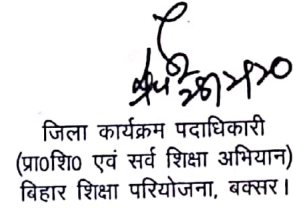 जिला कार्यक्रम पदाधिकारी
(प्रा0शि0 एवं सर्व शिक्षा अभियान)
बिहार शिक्षा परियोजना, बक्सर।